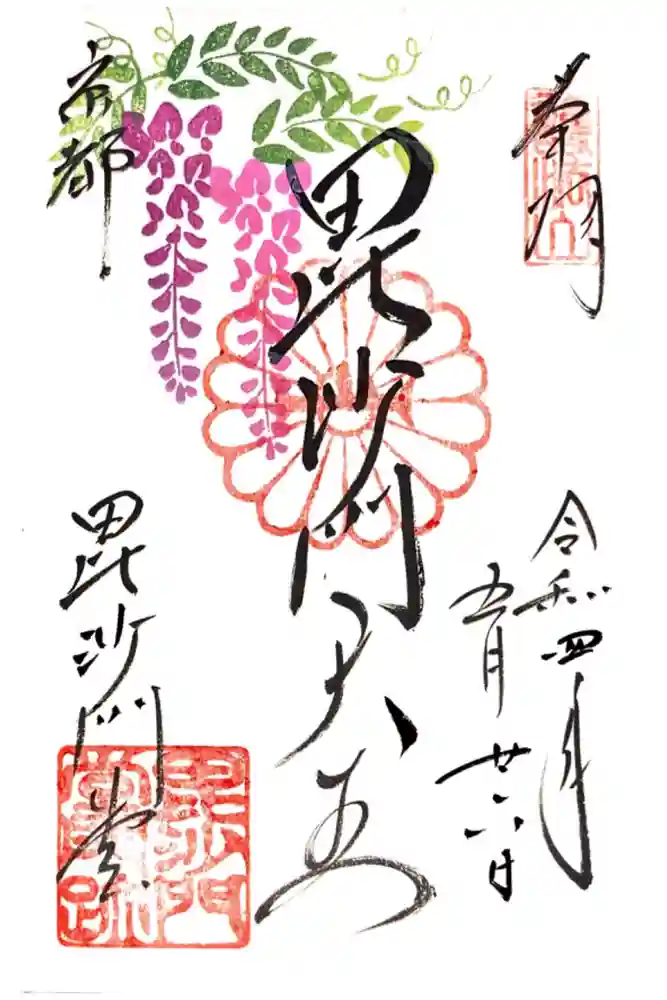 奉拝
令和四年
五月廿六日
毘沙門天王
京都
毘沙門堂